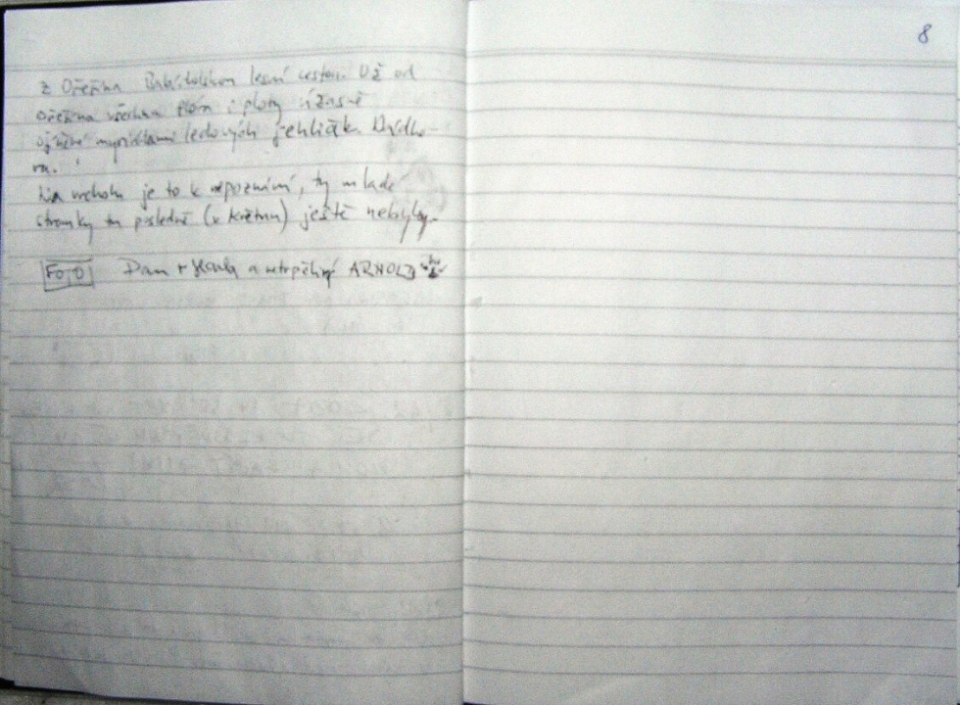 z Ořešína Babídolskou lesní cestou. Už od
Ořešína všechna flóra i ploty úžasně
ojíněné myriádami ledových jehliček. Nádhe-
ra.
Na vrcholu je to k nepoznání, ty mladé
stromky tu posledně (v květnu) ještě nebyly.
FOTO Dan + a netrpělivý ARNOLD
8